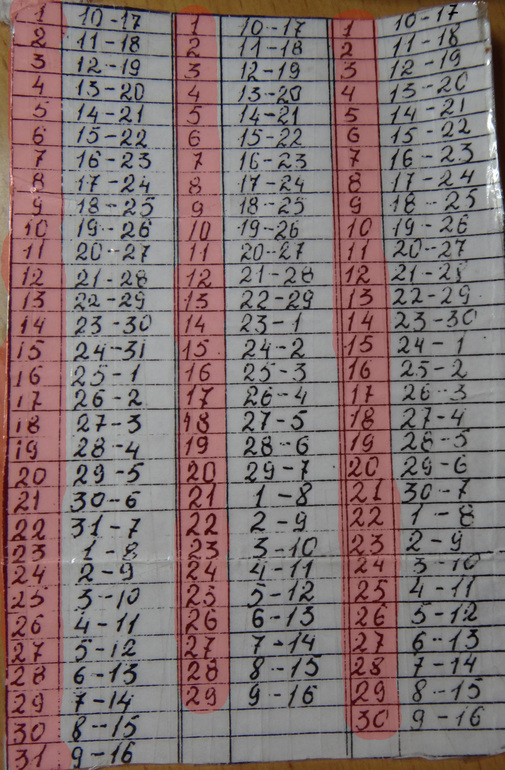 1 10-17 1 10-17 1 10-17
2 11-18 2 11-18 2 11-18
3 12-19 3 12-19 3 12-19
4 13-20 4 13-20 4 13-20
5 14-21 5 14-21 5 14-21
6 15-22 6 15-22 6 15-22
7 16-23 7 16-23 7 16-23
8 17-24 8 17-24 8 17-24
9 18-25 9 18-25 9 18-25
10 19-26 10 19-26 10 19-26
11 20-27 11 20-27 11 20-27
12 21-28 12 21-28 12 21-28
13 22-29 13 22-29 13 22-29
14 23-30 14 23-1 14 23-30
15 24-31 15 24-2 15 24-1
16 25-1 16 25-3 16 25-2
17 26-2 17 26-4 17 26-3
18 27-3 18 27-5 18 27-4
19 28-4 19 28-6 19 28-5
20 29-5 20 29-7 20 29-6
21 30-6 21 1-8 21 30-7
22 31-7 22 2-9 22 1-8
23 1-8 23 3-10 23 2-9
24 2-9 24 4-11 24 3-10
25 3-10 25 5-12 25 4-11
26 4-11 26 6-13 26 5-12
27 5-12 27 7-14 27 6-13
28 6-13 28 8-15 28 7-14
29 7-14 29 9-16 29 8-15
30 8-15 30 9-16
31 9-16